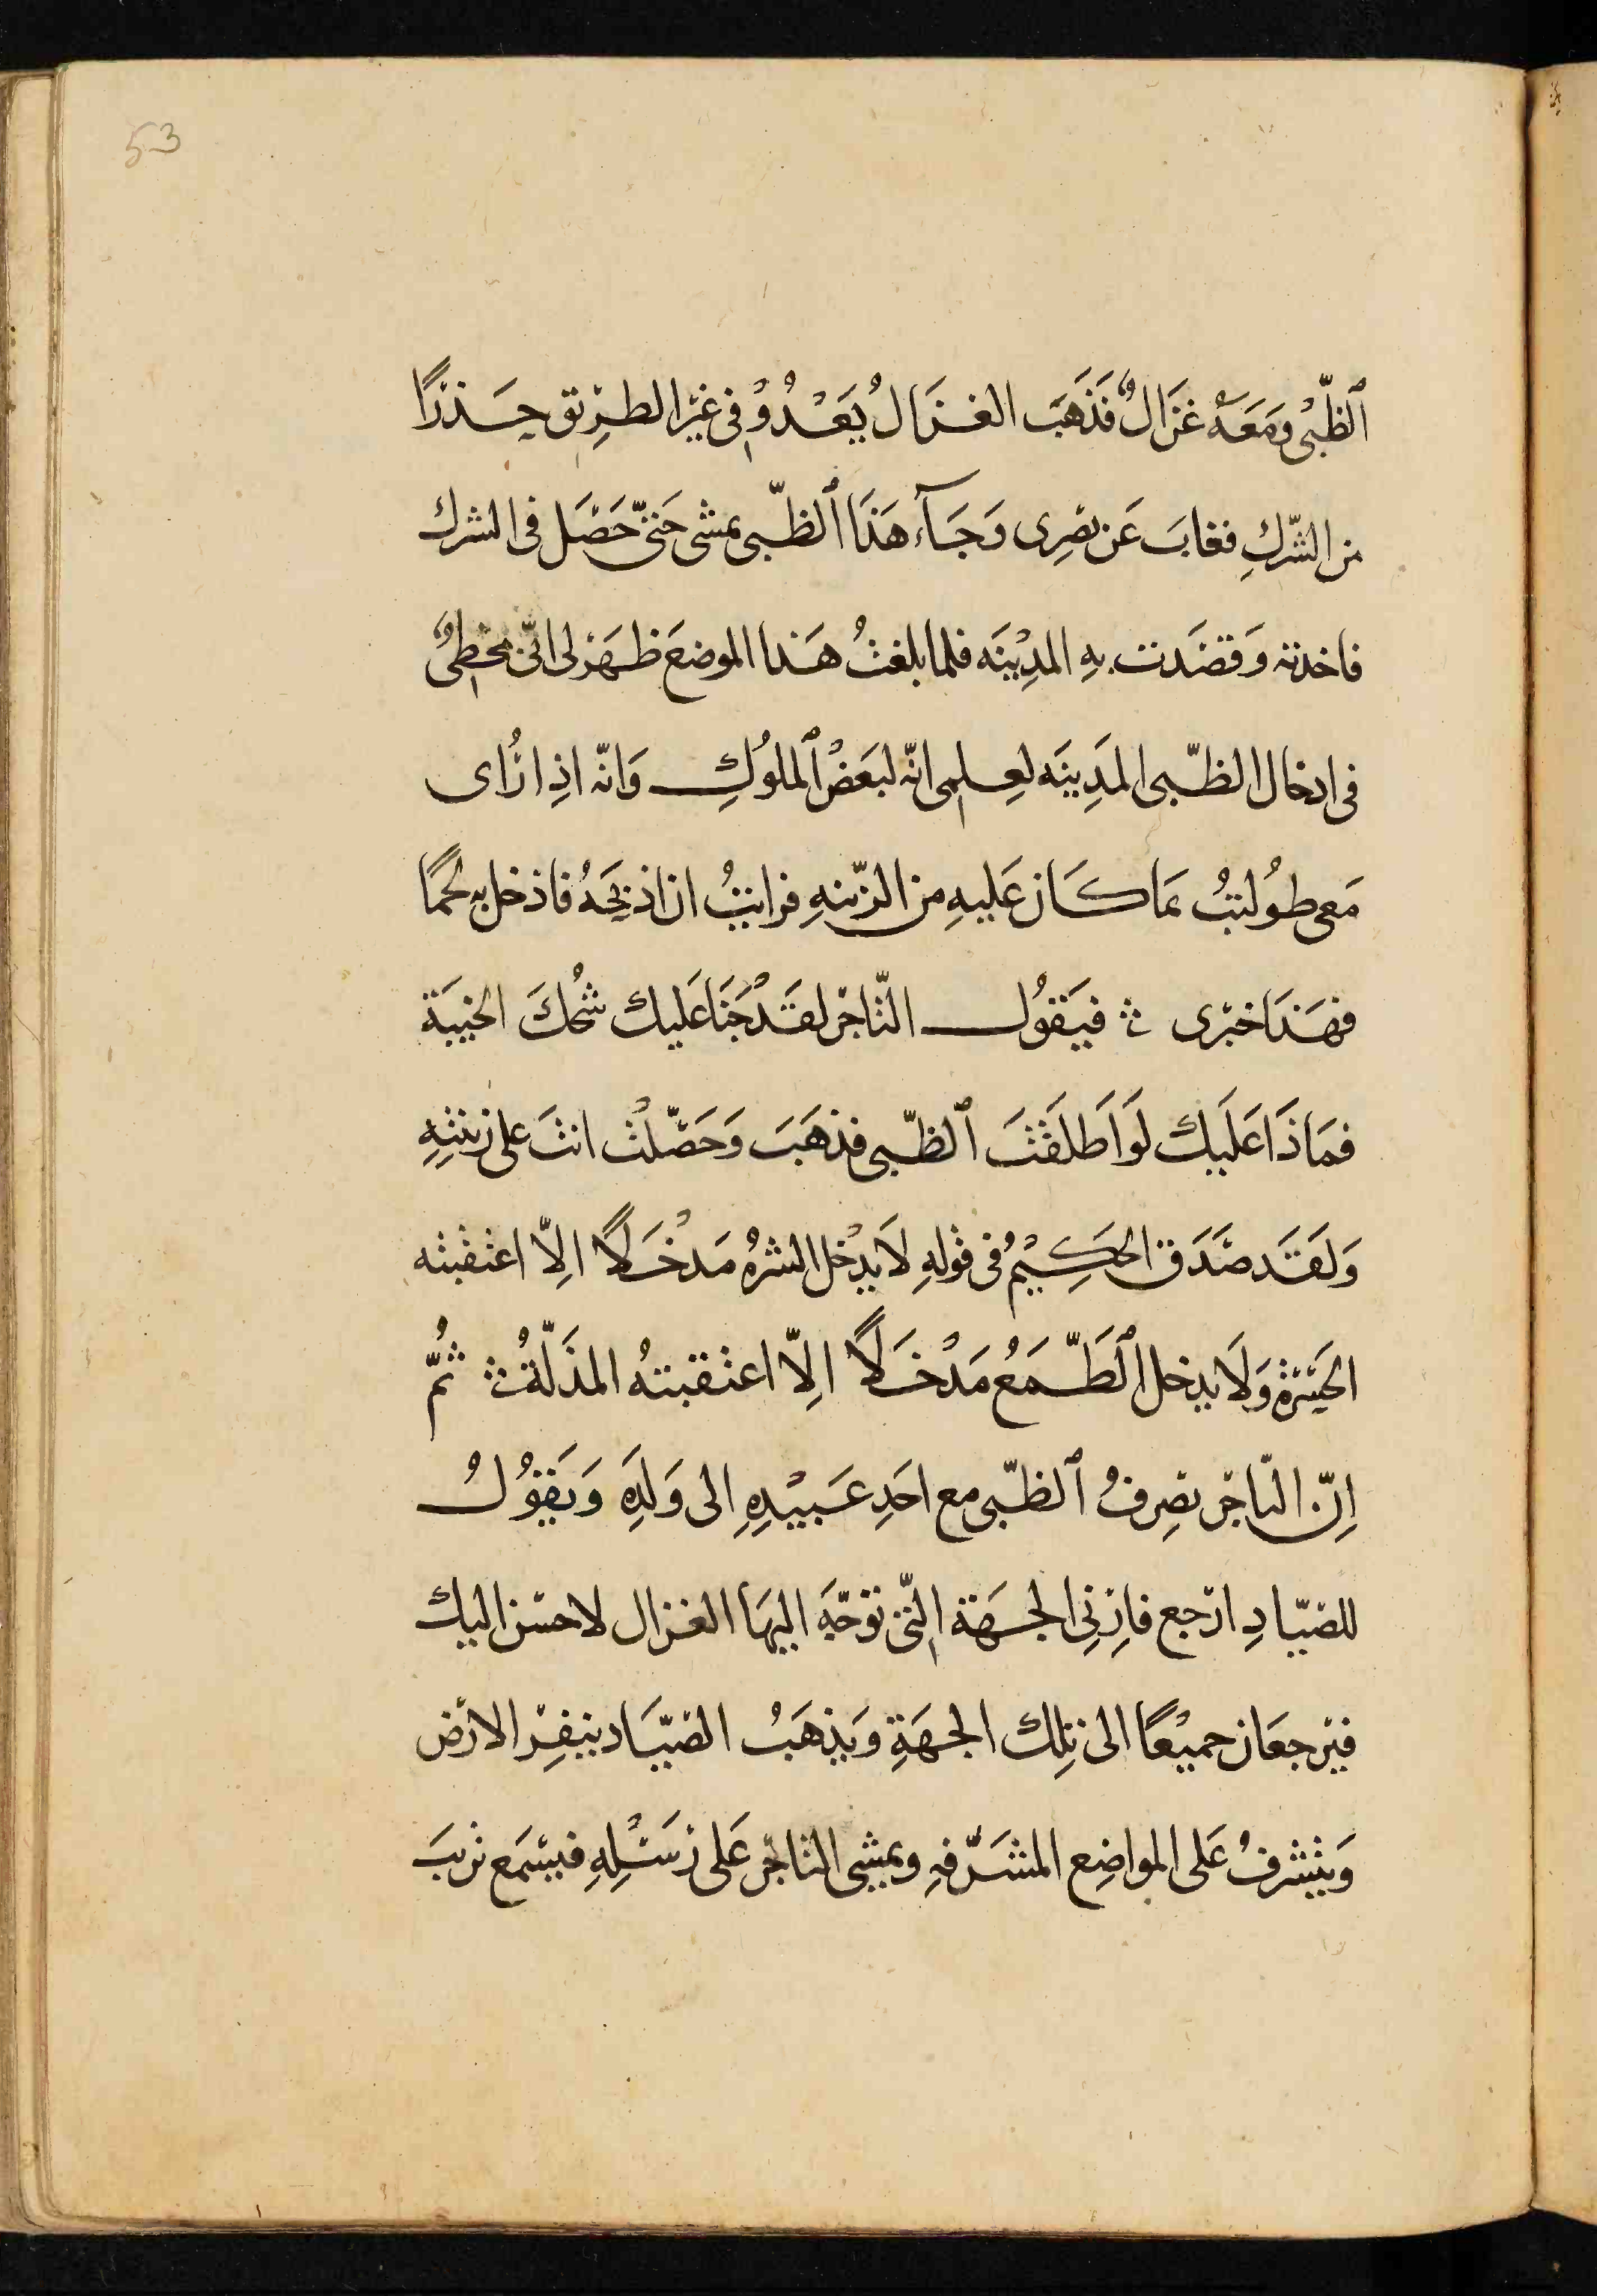 53
ٱلظّبى وَمَعَهُ غَزَالٌ فَذَهَبَ الغَزَالُ يَعْدُوْ فى غيْر الطرِيق حَذَرًا
من الشّركِ فغابَ عَن بصَرِى وَجَآء هَذَا ٱلظّبى يمشى حَتىّ حَصَل فى الشرك
فاخذته وَقصَدت بهِ المدِيْنَه فلما بلغتُ هَذا الموضعَ ظهَرَ لى انّى مخطِىٌ
فى ادخال الظّبى المَدِينَه لعِلمِى انّه لبَعَضْ ٱلملوُكِ وَانّه اذِا رُاى
مَعى طوُلبتُ بمَا كَان عَليهِ من الزّينهِ فرايتُ ان اذبحَهُ فادخل بهِ لحمًا
فهَذَا خبرى فيَقوُل التّاجر لقَدْ جَنَا عَليك شُحكَ الخيبَة
فمَاذَا عَلَيك لَو اَطلَقْتَ ٱلظّبى فذهَبَ وَحَصّلتْ انتَ على زينتِهِ
وَلَقَد صَدَق الحَكِيْمُ فى قولهِ لاَ يدْخل الشرهُ مَدْخَلاً الِاّ اعتقبته
الحَيْرة وَلاَ يدخل ٱلطَّمَعُ مَدْخَلاً الِاّ اعتقبتهُ المذَلّةُ ثمُّ
اِنّ التّاجر يصرِفُ ٱلظّبى مع احَدِ عَبيْدِهِ الى وَلَدِهِ وَيَقوُلُ
للصّيادِ ارجع فارِنِى الجهَة التّى توَجّهَ اليهَا الغزال لاحسن اليك
فيرجعَان جميْعًا الى تِلك الجهَةِ وَيذهَبُ الصّيَاد ينفِر الارض
وَيتشرفُ عَلى المواضِع المشَرّفهِ ويمشِى التاجر عَلى رَسْلِهِ فيسْمَع نزيبَ